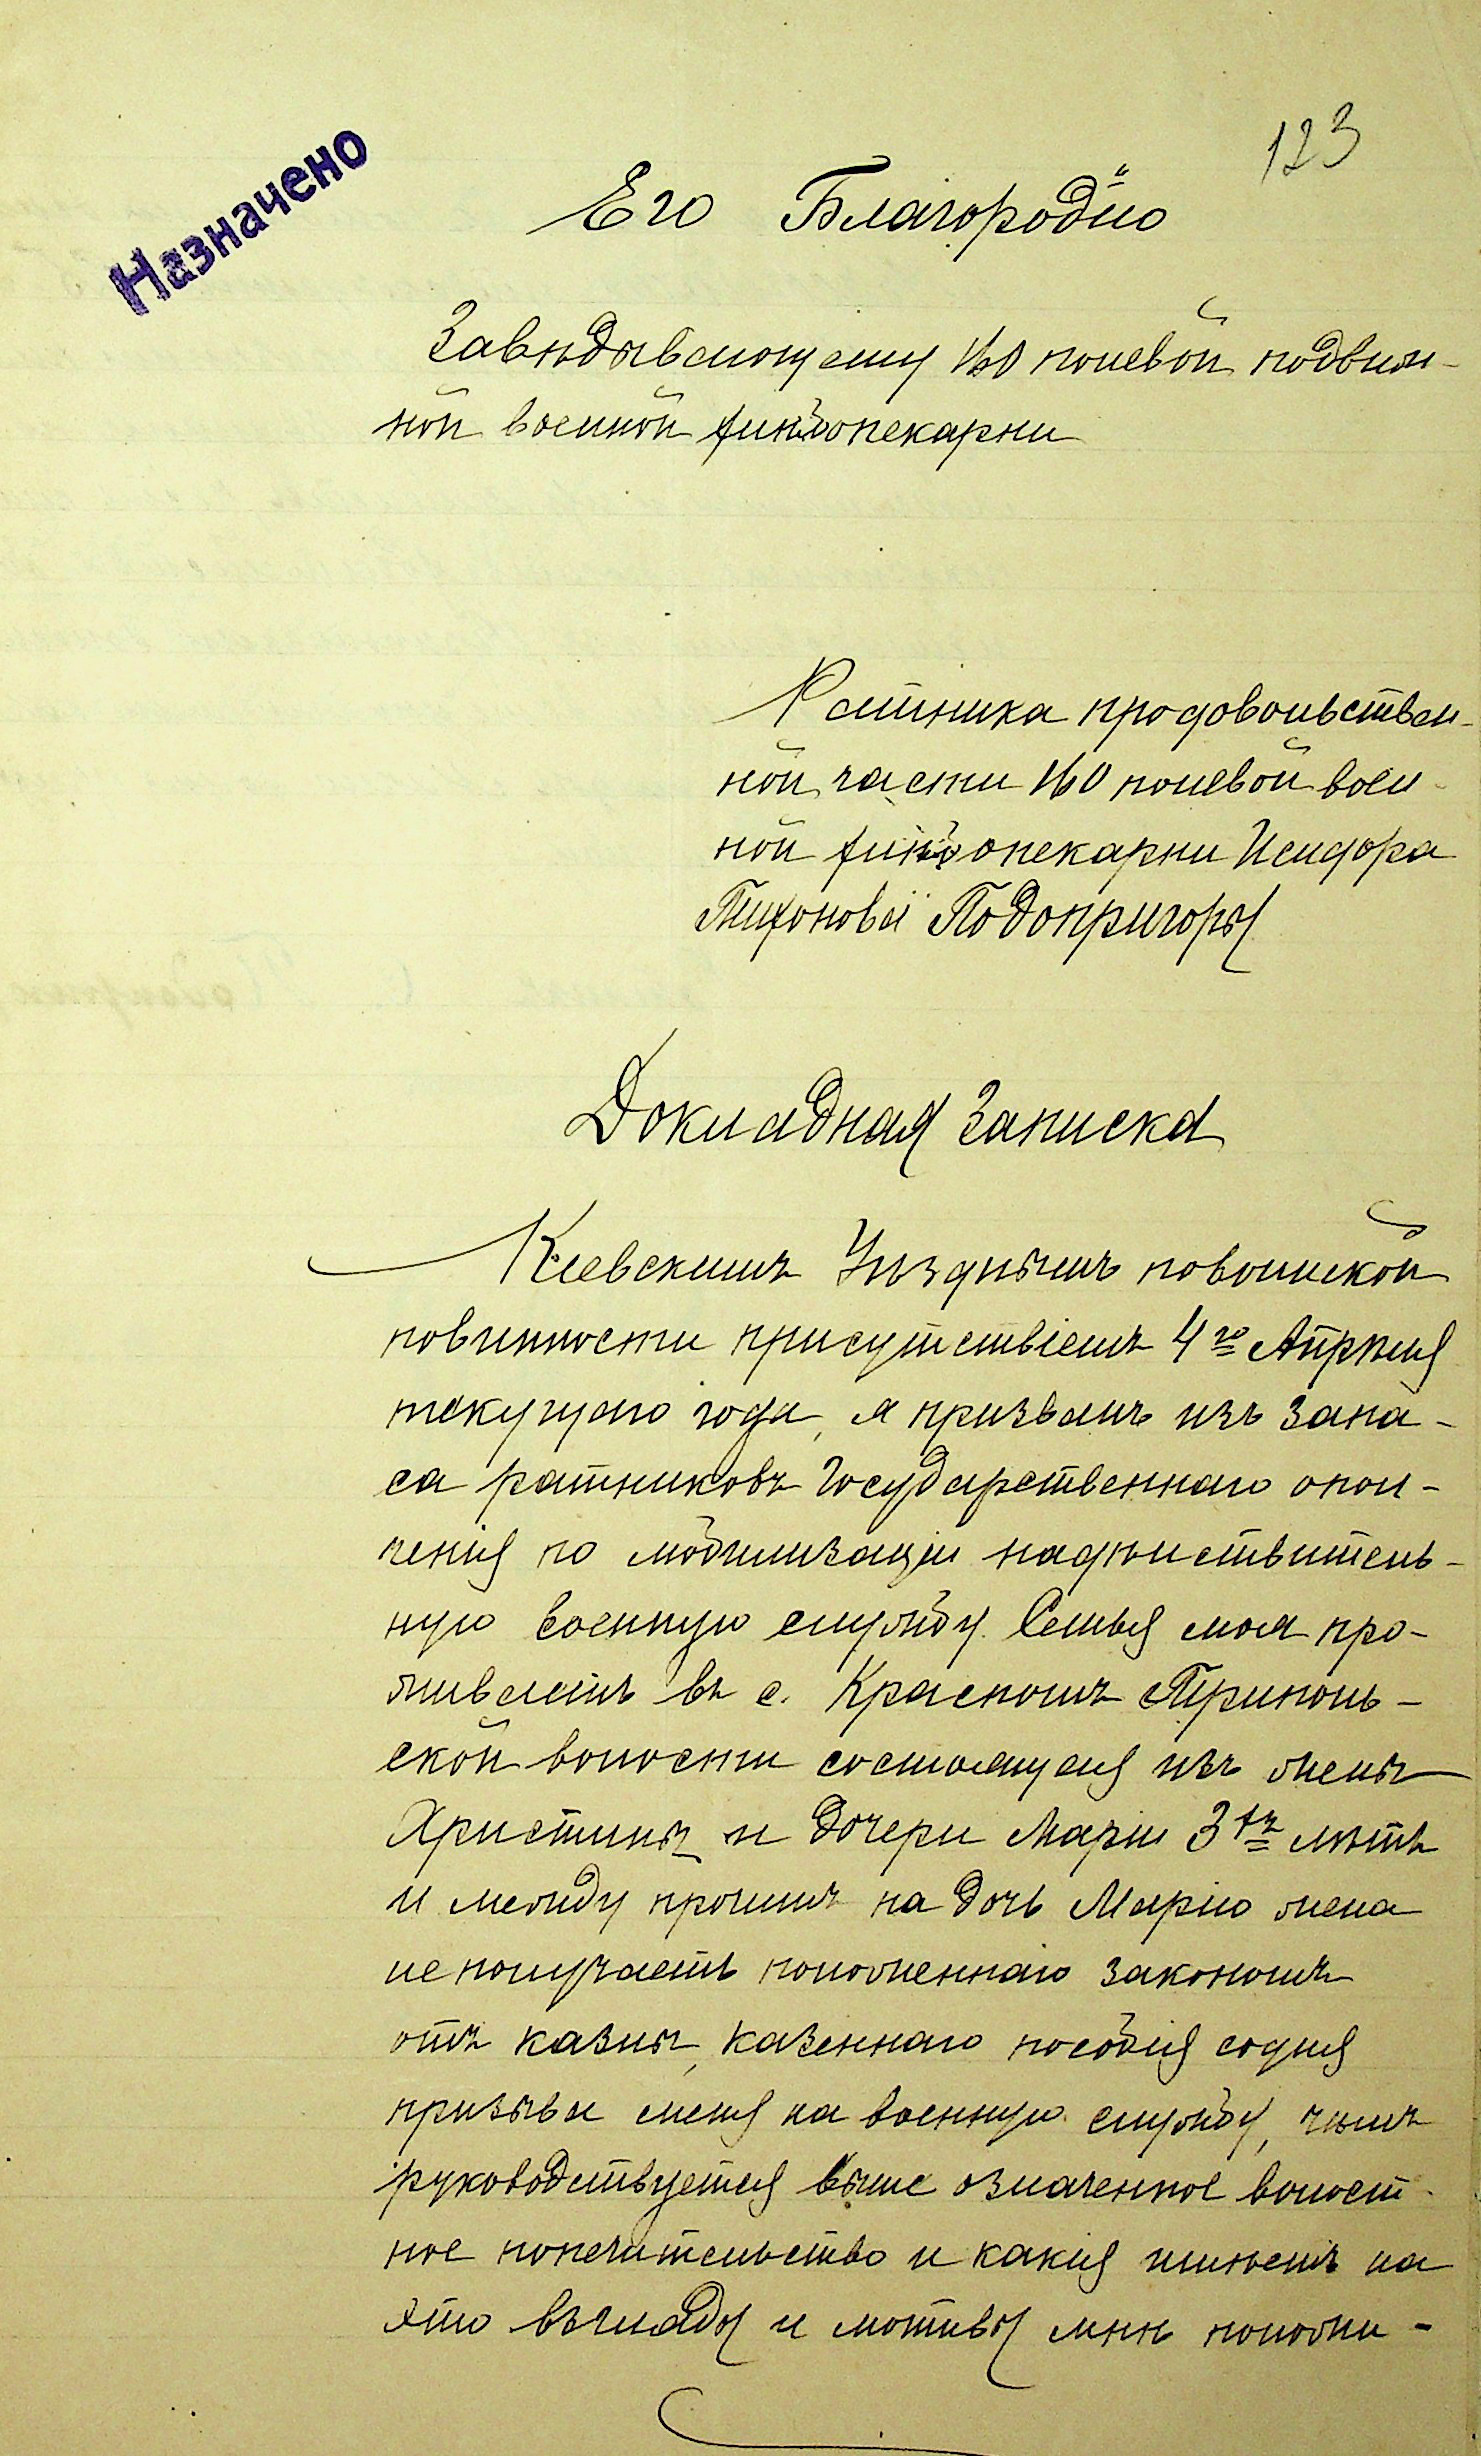 123
Назначено
Его Благородію
Завѣдывающему 160 полевой подвиж-
ной военной хлѣбопекарни
Ратника продовольствен-
ной части 160 полевой воен-
ной хлѣбопекарни Исидора
Тихонова Подопригоры
Докладная Записка
Кіевскимъ Уѣзднымъ по воинской
повинности присутствіемъ 4го Апрѣля
текущаго года, я призванъ изъ запа-
са ратниковъ Государственнаго опол-
ченія по мобилизаціи на дѣйствитель-
ную военную службу. Семья моя про-
живаетъ въ с. Красномъ Трипполь-
ской волости состоящая изъ жены
Христины и дочери Маріи 3хъ лѣтъ
и между прочимъ на дочь Марію жена
не получаетъ положеннаго закономъ
отъ казны, казеннаго пособія со дня
призыва меня на военную службу, чѣмъ
руководствуется выше означенное волост-
ное попечительство и какія имѣетъ на
это взгляды и мотивы мнѣ положи-